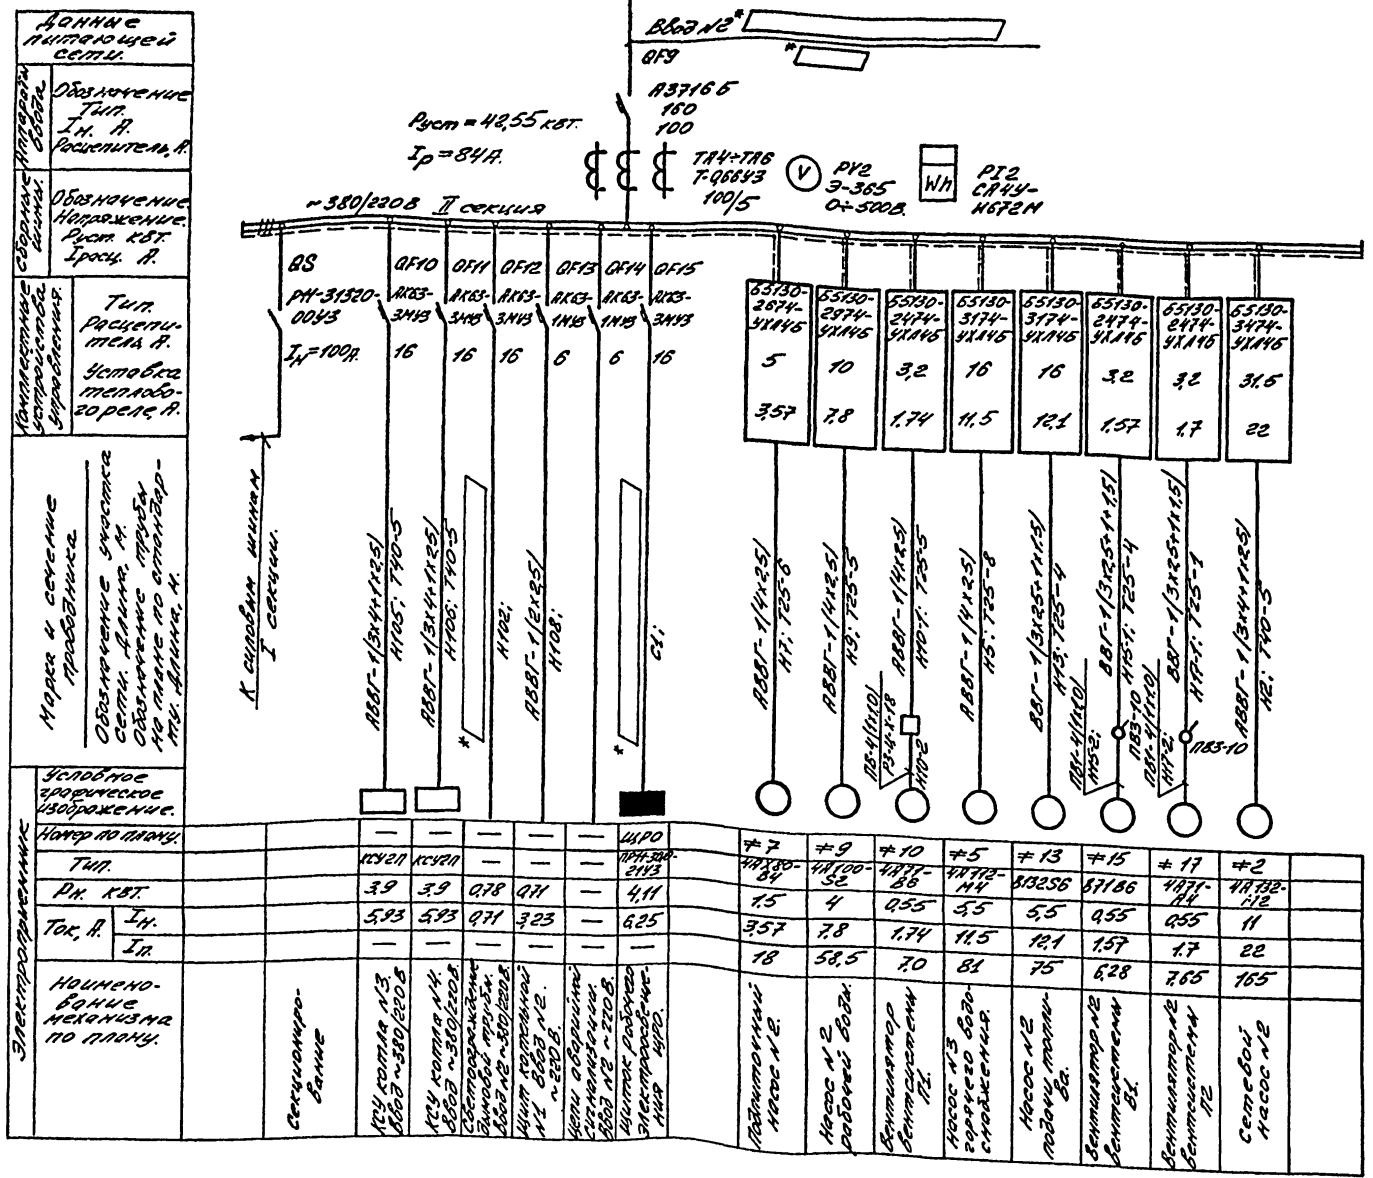 Данные
питающей
сети.
Аппараты
ввода
Обозначение
Тип.
Iн. А.
Расцепитель, А.
Сборные
шины.
Обозначение
Напряжение.
Руст. кВт.
Iрасц. А.
Комплектные
устройства
управления.
Тип.
Расцепи-
тель А.
Уставка
теплово-
го реле, А.
Марка и сечение
проводника.
Обозначение участка
сети. Длина, м.
Обозначение трубы
на плане по стандар-
ту. Длина, м.
Электроприемник
Условное
графическое
изображение.
Номер по плану.
Тип.
Рн. кВт.
Ток, А.
Iн.
Iп.
Наимено-
вание
механизма
по плану.
Ввод №2*
*
QF9
А3716Б
160
100
Руст = 42,55 кВт.
Iр = 84А.
ТА4÷ТА6
Т-0,66У3
100/5
V
PV2
Э-365
0÷500В.
Wh
PI2
СА4У-
И672М
~380/220В II секция
QS
РП-31320-
00У3
Iн=100А.
QF10
АК63-
3МУ3
16
QF11
АК63-
3МУ3
16
QF12
АК63-
3МУ3
16
QF13
АК63-
1МУ3
6
QF14
АК63-
1МУ3
6
QF15
АК63-
3МУ3
16
Б5130-
2674-
УХЛ4Б
5
3,57
Б5130-
2974-
УХЛ4Б
10
7,8
Б5130-
2474-
УХЛ4Б
3,2
1.74
Б5130-
3174-
УХЛ4Б
16
11.5
Б5130-
3174-
УХЛ4Б
16
12,1
Б5130-
2474-
УХЛ4Б
3,2
1.57
Б5130-
2474-
УХЛ4Б
3,2
1.7
Б5130-
3474-
УХЛ4Б
31.5
22
К силовым шинам
I секции.
АВВГ-1/3х4+1х2,5/
Н105; Т40-5
АВВГ-1/3х4+1х2,5/
Н106; Т40-5
*
Н102;
АВВГ-1/2х2,5/
Н108;
*
С1;
АВВГ-1/4х2.5/
Н7; Т25-6
АВВГ-1/4х2.5/
Н9; Т25-5
АВВГ-1/4х2.5/
Н10-1; Т25-5
ПВ-4/1х1.0/
РЗ-Ц-Х-18
Н10-2
АВВГ-1/4х2.5/
Н5; Т25-8
ВВГ-1/3х2.5+1х1.5/
Н13; Т25-4
ВВГ-1/3х2.5+1+1,5/
Н15-1; Т25-4
ПВ1-4/1х1.0/
Н15-2;
ПВ3-10
ВВГ-1/3х2.5+1х1,5/
Н17-1; Т25-1
ПВ1-4/1х1.0/
Н17-2;
ПВ3-10
АВВГ-1/3х4+1х2.5/
Н2; Т40-5
— — — — — ЩРО #7 #9 #10 #5 #13 #15 #17 #2
КСУ2П КСУ2П — — — 4АХ80- 4А100- 4А71- 4А112- В132S6 В71В6 4А71- 4А132-
21У3 В4 S2 В6 М4 А4
3.9 3.9 0,78 0,71 — 4,11 1.5 4 0,55 5,5 5,5 0,55 0,55 11
5,93 5,93 0,71 3,23 — 6,25 3,57 7.8 1.74 11.5 12,1 1.57 1.7 22
— — — — — — 18 58,5 7.0 81 75 6,28 7,65 165
Секциониро-
вание
КСУ котла №3.
Ввод ~380/220В
КСУ котла №4.
Ввод ~380/220В.
Светоограждение
дымовой трубы.
Ввод №2 ~380/220В.
Щит котельной
№1 Ввод №2.
~220В.
Цепи аварийной
сигнализации.
Ввод №2 ~220В.
Щиток рабочего
электроосвеще-
ния ЩРО.
Подпиточный
насос №2.
Насос №2
рабочей воды.
Вентилятор
вентсистемы
П1.
Насос №3
горячего водо-
снабжения.
Насос №2
подачи топли-
ва.
Вентилятор №2
вентсистемы
В1.
Вентилятор №2
вентсистемы
П2
Сетевой
насос №2